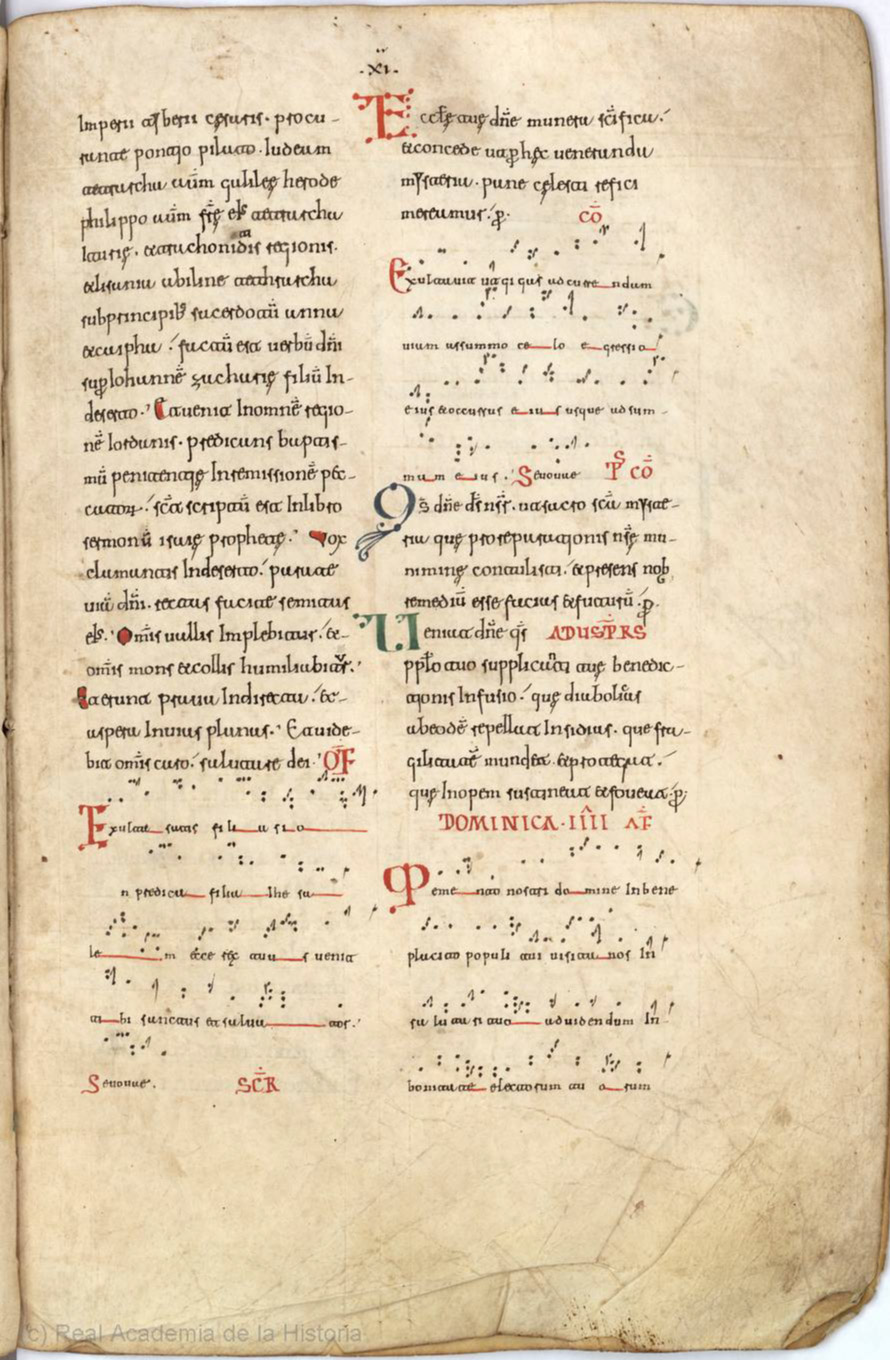 .xi.
Imperii tyberii cęsaris. procu-
rante pontio pilato. Iudeam
tetrarcha aūm galileę herode
philippo aūm frē eſ tetrarcha
iturię. et traconitidis regionis.
et lisania abiline tetrharcha
sub principib; sacerdotū anna
et caipha. factū est uerbū dn̄i
sup Iohannē zacharię filiū In-
deserto. Et uenit In omnē regio-
nē Iordanis. predicans baptis-
mū penitentię In remissionē pec-
catorꝝ. sic̄ scriptū est In libro
sermonū isaię prophetę. Vox
clamantis In deserto. parate
uiā dn̄i. rectas facite semitas
eſ. Om̄is uallis Implebitur. et
om̄is mons et collis humiliabitur.
Et erunt praua In directa. et
aspera In uias planas. Et uide-
bit om̄is caro. salutare dei. OF̄
Exulta satis filia sio
n predica filia Ihe ru
le m ecce rex tuus uenit
ti bi sanctus et salua tor.
Seuouae. SCR̄
Ecclę tuę dn̄e munera sc̄ifica.
et concede ut p hęc ueneranda
mysteria. pane cęlesti refici
mereamur. p. CŌ
Exultauit ut gigas ad currendum
uiam a summo ce lo egressio
eius et occursus eius usque ad sum-
mum eius. Seuouae P̄S CŌ
Qs̄ dn̄e ds̄ nr̄. ut sacro sc̄a myste-
ria que pro reparationis nrę mu-
nimine contulisti. et presens nob
remediū esse facias et futurū. p.
Ueniat dn̄e qs̄ AD USP̄RS
pplo tuo supplicanti tuę benedic-
tionis Infusio. que diabolicas
ab eodē repellat Insidias. que fra-
gilitatē mundet et protegat.
que Inopem sustineat et foueat. p;
DOMINICA. IIII AT̄
Memento nostri domine In bene
placito populi tui uisita nos In
salutari tuo ad uidendum In
bonitate electorum tuorum
(c) Real Academia de la Historia